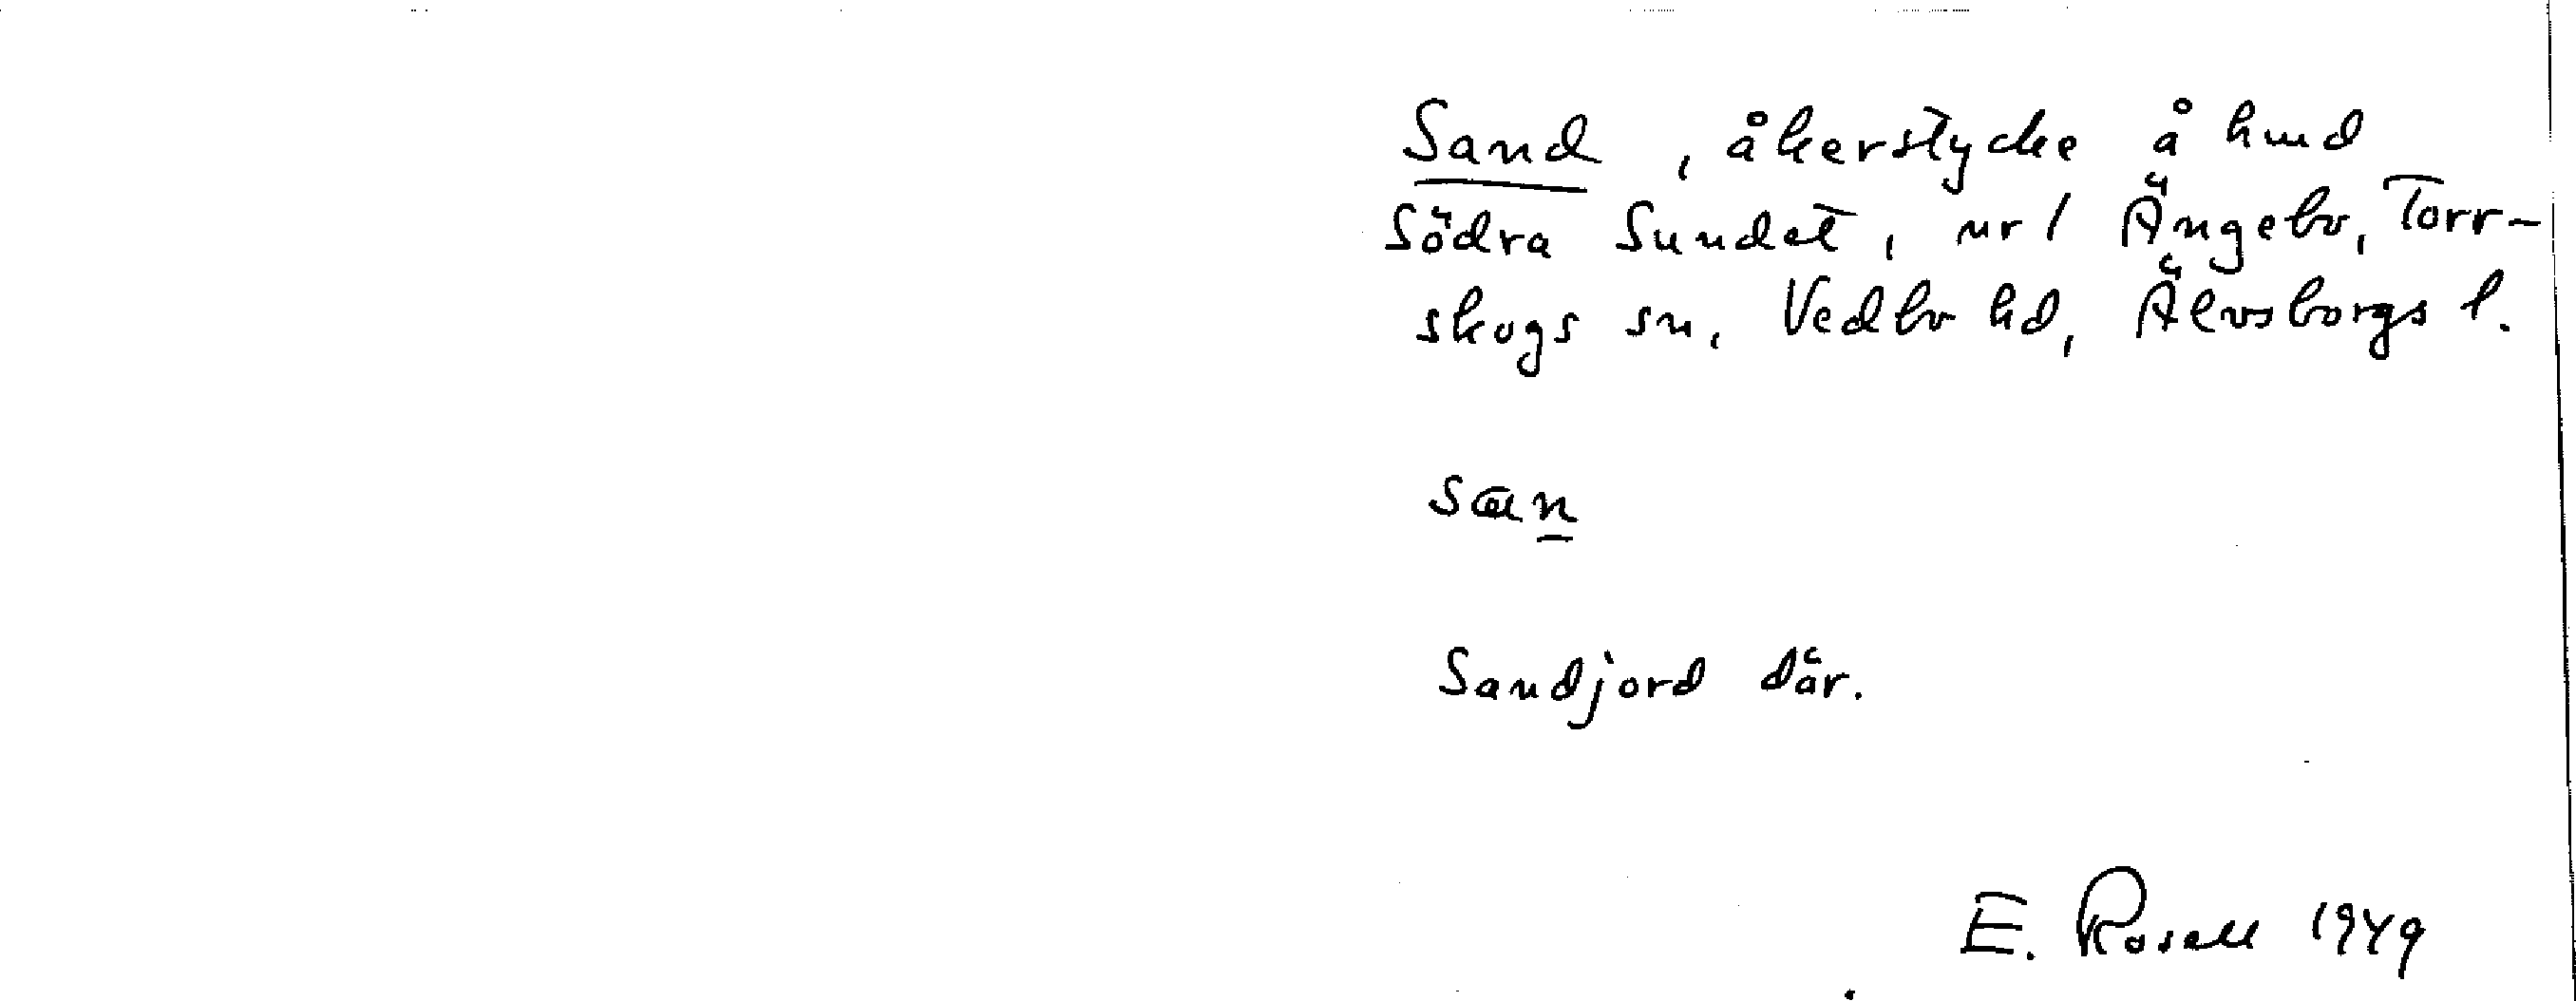 Sand, åkerstycke å hmd
Södra Sundet, nr 1 Ängebo, Torr-
skogs sn, Vedbo hd, Älvsborgs l.
Sandjord där.
E. Rosell 1949